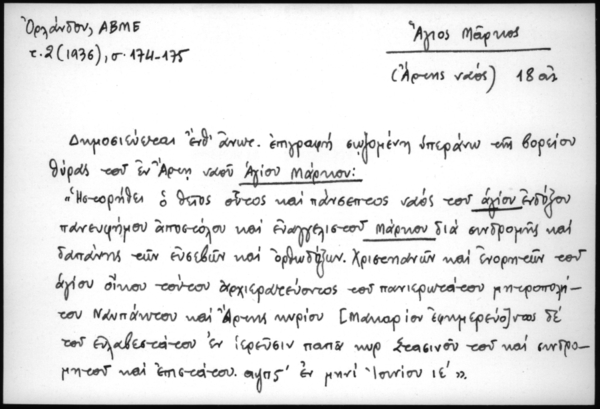 Ὀρλάνδου, ΑΒΜΕ
τ. 2 (1936), σ. 174-175
Ἅγιος Μᾶρκος
(Ἄρτης ναός) 18 αἰ.
Δημοσιεύεται ἔνθ' ἄνωτ. ἐπιγραφή σῳζομένη ὑπεράνω τῆς βορείου
θύρας τοῦ ἐν Ἄρτῃ ναοῦ Ἁγίου Μάρκου:
"Ἡστορήθει ὁ θεῖος οὗτος καί πάνσεπτος ναός τοῦ ἁγίου ἐνδόξου
πανευφήμου ἀποστόλου καί εὐαγγελιστοῦ Μάρκου διά συνδρομῆς καί
δαπάνης τῶν εὐσεβῶν καί ὀρθωδόξων. Χριστηανῶν καί ἐνορητῶν τοῦ
ἁγίου οἴκου τούτου ἀρχιερατεύοντος τοῦ πανιερωτάτου μητροπολή-
του Ναυπάκτου καί Ἄρτης κυρίου [Μακαρίου ἐφημερεύο]ντος δέ
τοῦ εὐλαβεστάτου ἐν ἱερεῦσιν παπα κυρ Στασινοῦ τοῦ καί συνδρο-
μητοῦ καί ἐπιστάτου. αψπς' ἐν μηνί Ἰουνίου ιε'».